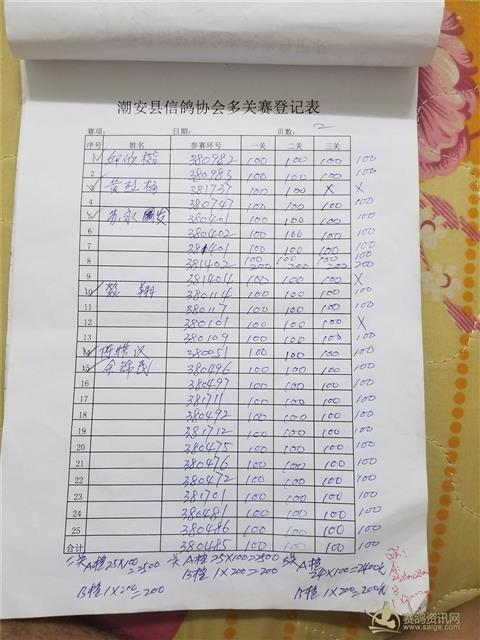 潮安县信鸽协会多关赛登记表
赛项: 日期: 页数: 2
序号 姓名 参赛环号 一关 二关 三关
1 380982 100 100 100 100
2 380983 100 100 100 100
3 381737 100 100 X X
4 380747 100 100 100 100
5 380401 100 100 100 100
6 380402 100 100 100 100
7 100 100 100 100
8 381402 100 200 100 200 100 200 100 200
9 100 100 100 X
10 翔 380114 100 100 100 100
11 380117 100 100 100 100
12 380101 100 100 100 X
13 380109 100 100 100 100
14 陈惜汉 380051 100 100 100 100
15 余锦茂 380496 100 100 100 100
16 380497 100 100 100 100
17 381711 100 100 100 100
18 380492 100 100 100 100
19 381712 100 100 100 100
20 380475 100 100 100 100
21 380476 100 100 100 100
22 380472 100 100 100 100
23 381701 100 100 100 100
24 380481 100 100 100 100
25 380486 100 100 100 100
合计 380485 100 100 100 100
A档 25X100=2500 A档 25X100=2500 A档 24X100=2400元
B档 1X200=200 B档 1X200=200 B档 1X200=200元
赛鸽资讯网
www.saige.com